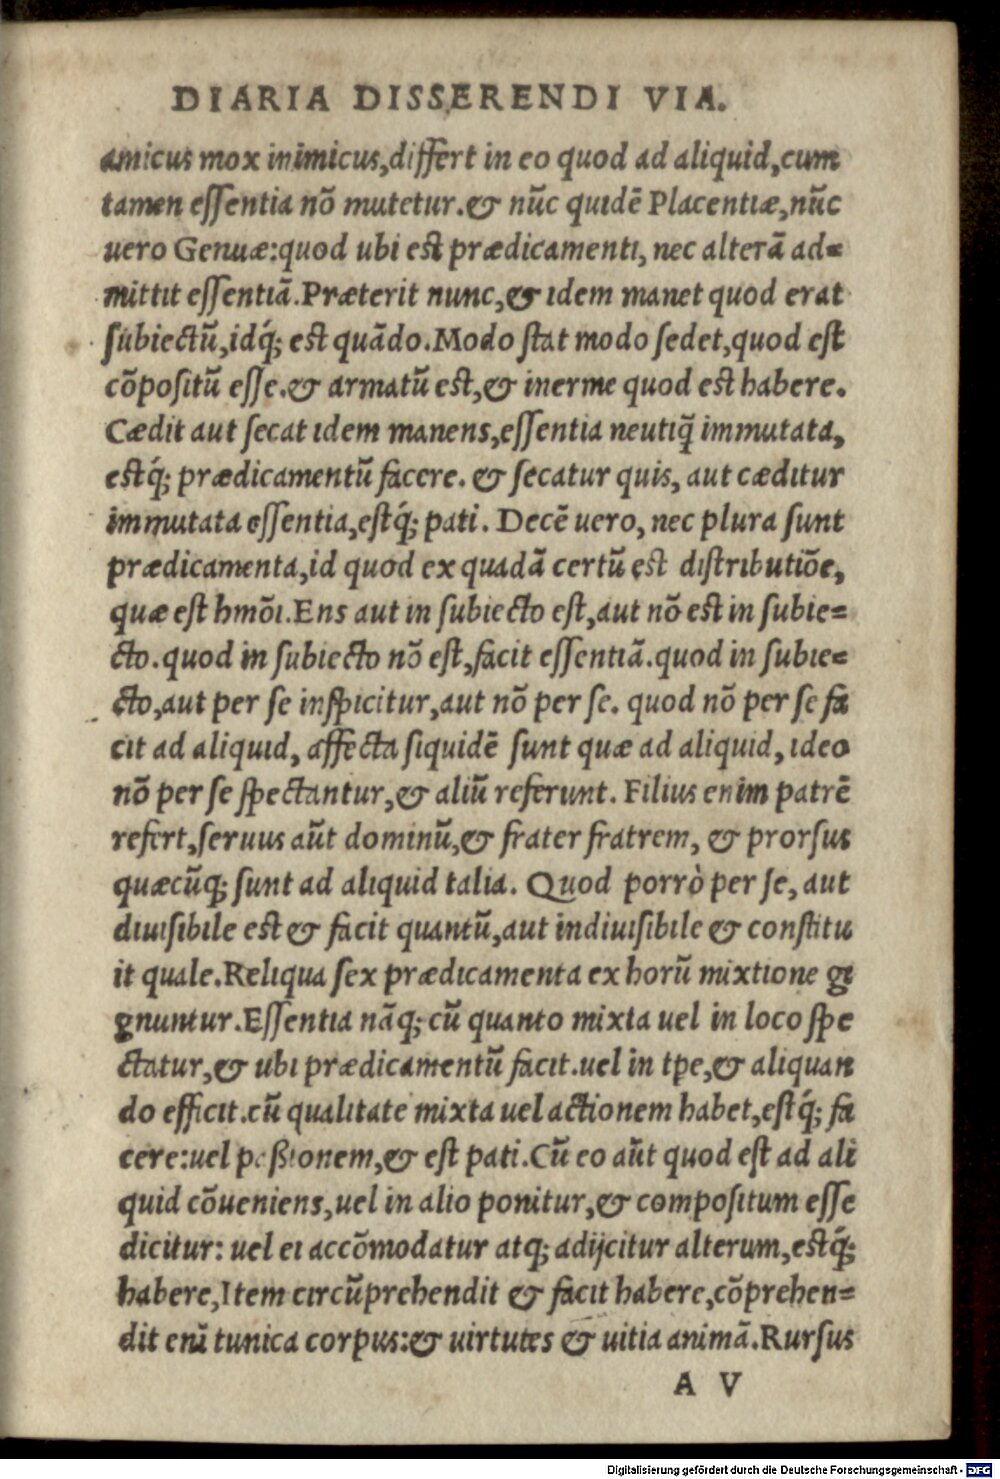 DIARIA DISSERENDI VIA.
amicus mox inimicus,differt in eo quod ad aliquid,cum
tamen essentia nō mutetur.& nūc quidē Placentiæ,nūc
uero Genuæ:quod ubi est prædicamenti, nec alterā ad=
mittit essentiā.Præterit nunc,& idem manet quod erat
subiectū,idq́; est quādo.Modo stat modo sedet,quod est
cōpositū esse.& armatū est,& inerme quod est habere.
Cædit aut secat idem manens,essentia neutiq̃ immutata,
estq́; prædicamentū facere. & secatur quis, aut cæditur
immutata essentia,estq́; pati. Decē uero, nec plura sunt
prædicamenta,id quod ex quadā certū est distributiōe,
quæ est hmōi.Ens aut in subiecto est,aut nō est in subie=
cto.quod in subiecto nō est,facit essentiā.quod in subie=
cto,aut per se inspicitur,aut nō per se. quod nō per se fa
cit ad aliquid, affecta siquidē sunt quæ ad aliquid, ideo
nō per se spectantur,& aliū referunt. Filius enim patrē
refert,seruus aūt dominū,& frater fratrem, & prorsus
quæcūq; sunt ad aliquid talia. Quod porrò per se, aut
diuisibile est & facit quantū,aut indiuisibile & constitu
it quale.Reliqua sex prædicamenta ex horū mixtione gi
gnuntur.Essentia nāq; cū quanto mixta uel in loco spe
ctatur,& ubi prædicamentū facit.uel in tpe,& aliquan
do efficit.cū qualitate mixta uel actionem habet,estq́; fa
cere:uel paßionem,& est pati.Cū eo aūt quod est ad ali
quid cōueniens,uel in alio ponitur,& compositum esse
dicitur: uel ei accōmodatur atq; adijcitur alterum,estq́;
habere,Item circūprehendit & facit habere,cōprehen=
dit enī tunica corpus:& uirtutes & uitia animā.Rursus
A V
Digitalisierung gefördert durch die Deutsche Forschungsgemeinschaft - DFG